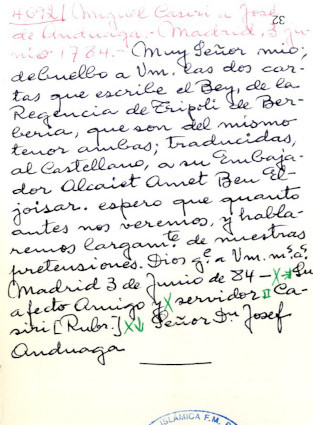 32
4692/ (Miguel Casiri a José
de Anduaga.- (Madrid, 3 ju-
nio 1784.- Muy Señor mio;
debuelbo a Vm. las dos car-
tas que escribe el Bey, de la
Regencia de Tripili de Ber-
beria, que son del mismo
tenor ambas; traducidas,
al Castellano, a su Embaja-
dor Alcaiet Amet Ben El-
joisar. espero que quanto
antes nos veremos, y habla-
remos largam.te de nuestras
pretensiones. Dios g.e a Vm. m.s a.s
(Madrid 3 de Junio de 84 - X Su
afecto Amigo y X servidor Ca-
siri [Rubr.] X Señor Dn Josef
Anduaga
ISLÁMICA F. M.